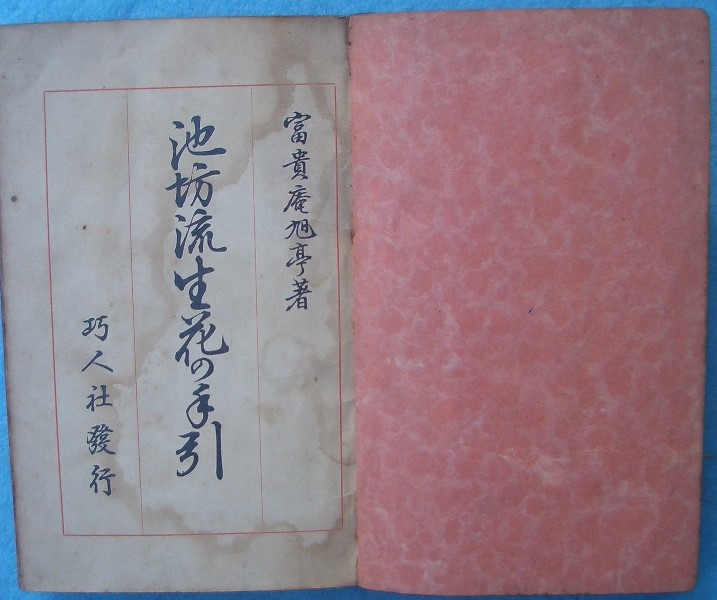 富貴庵旭亭著
池坊流生花の手引
巧人社發行